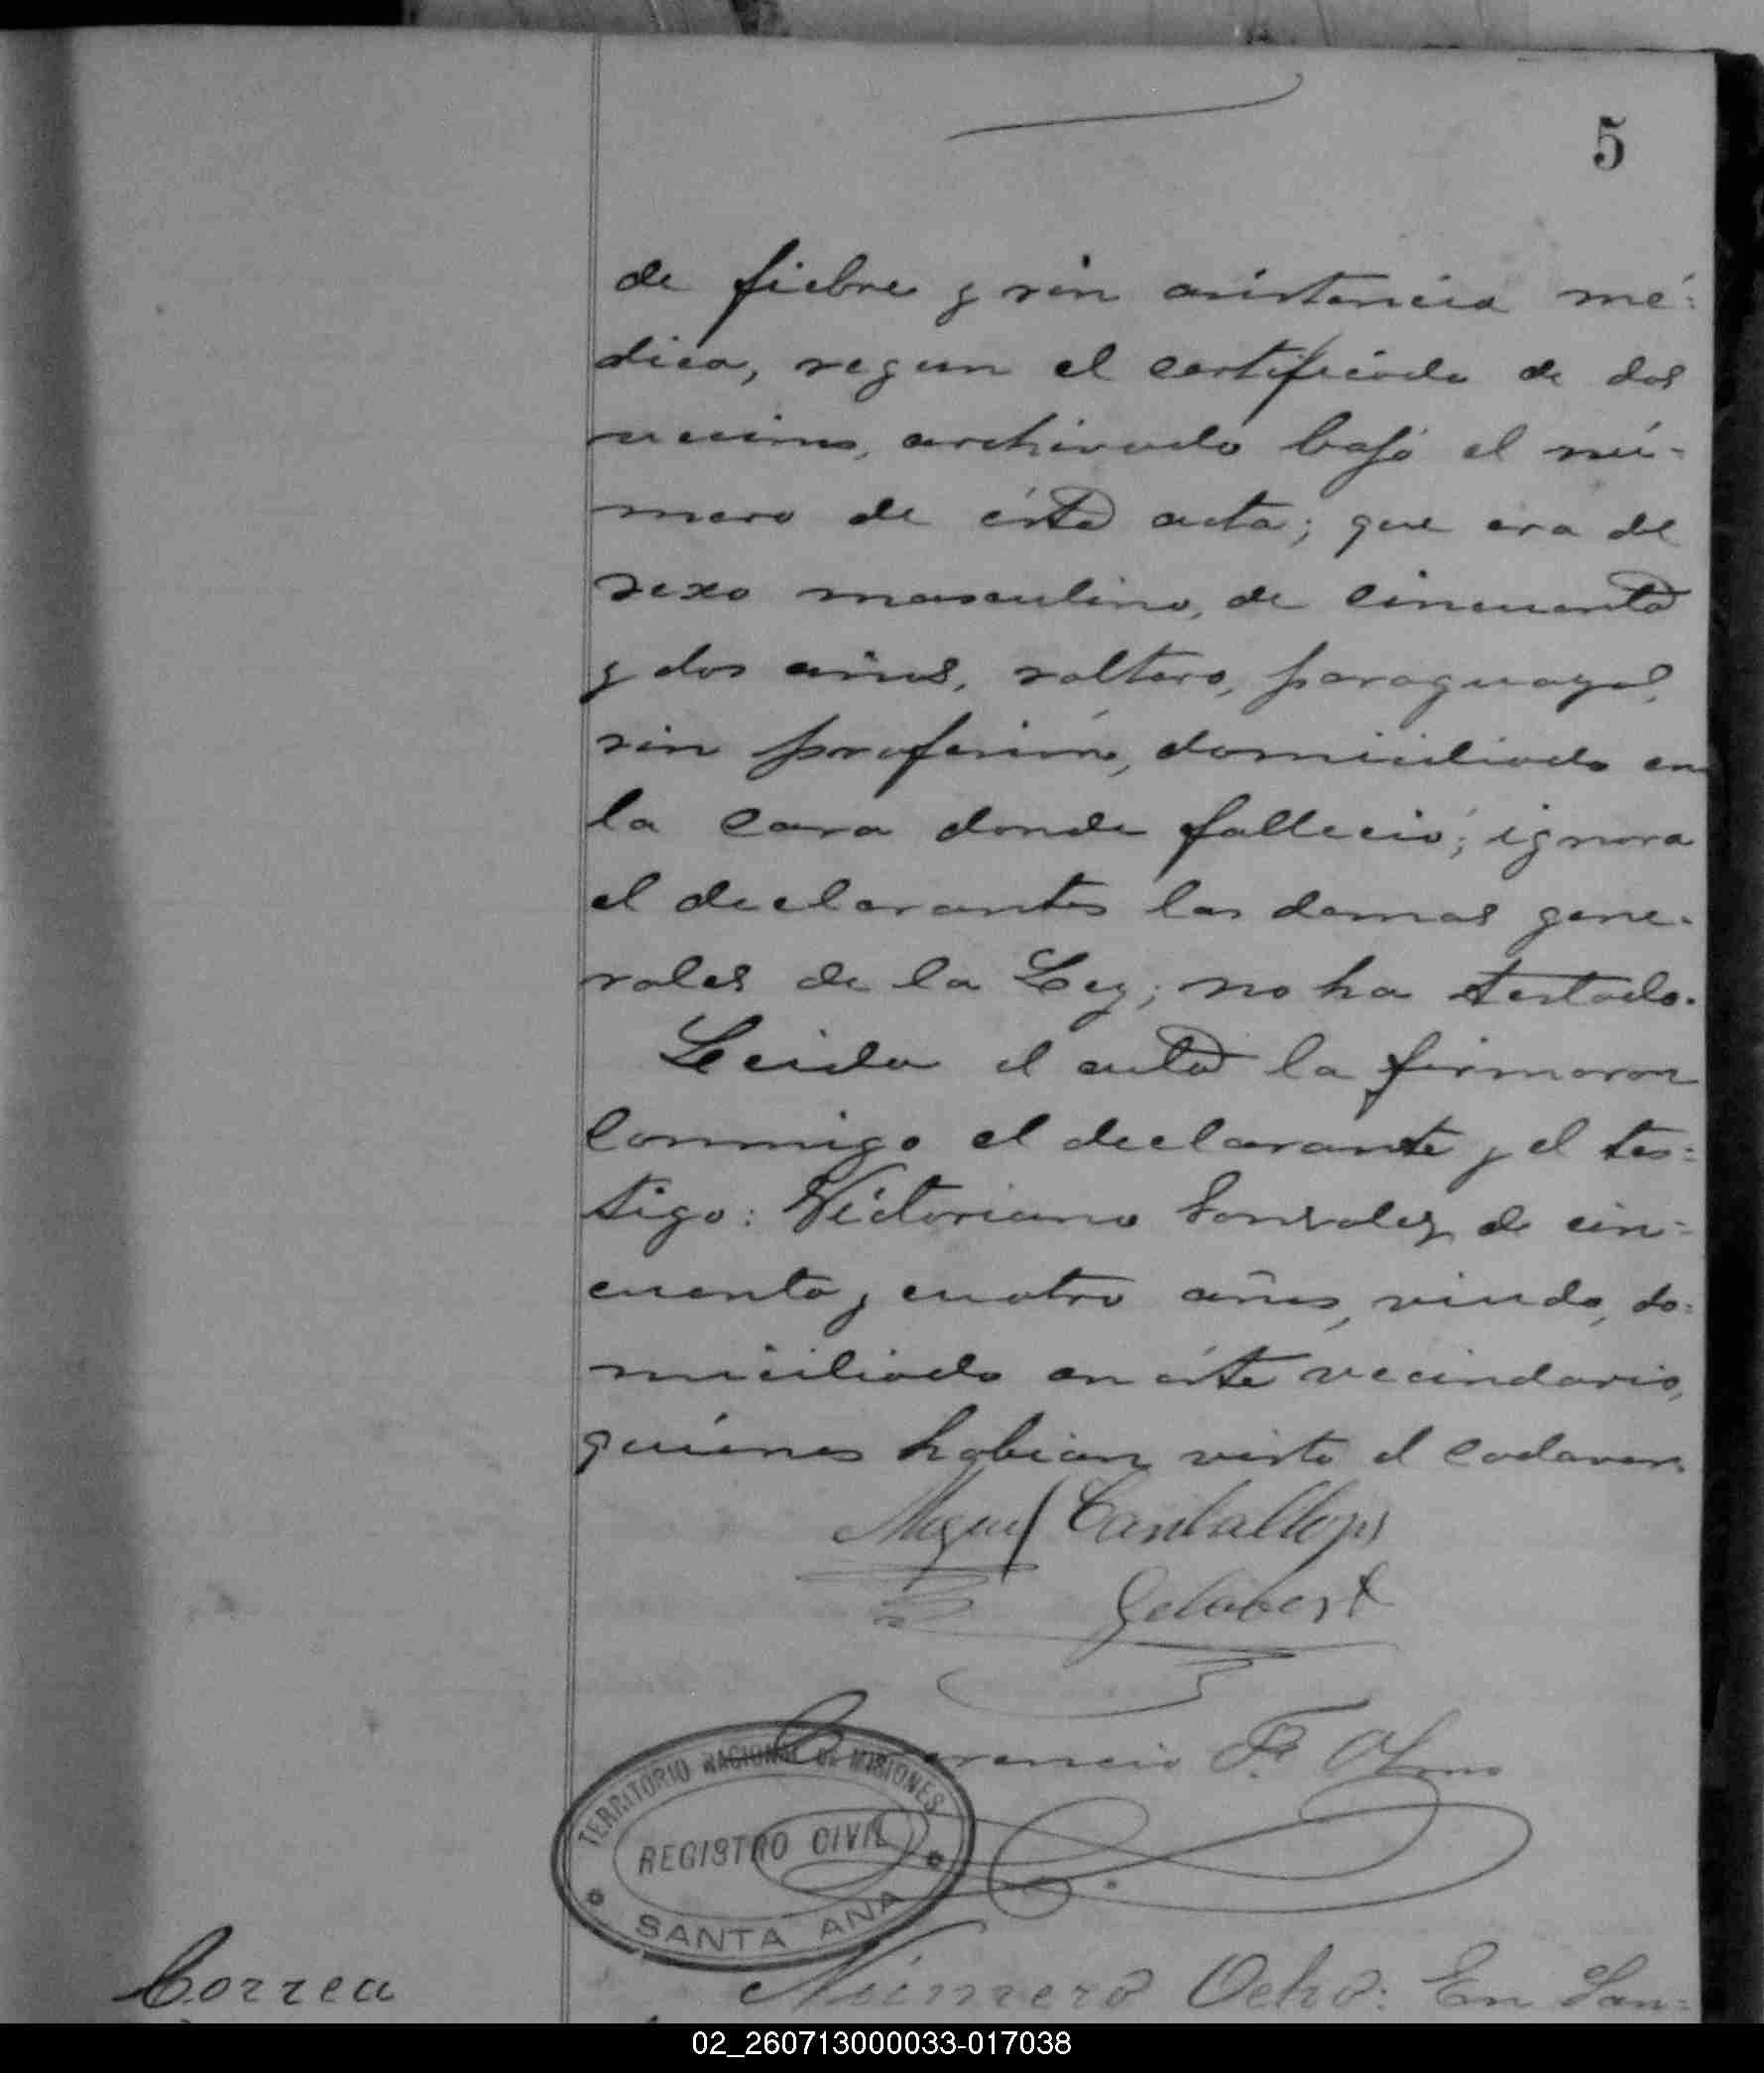 5
de fiebre y sin asistencia mé=
dica, segun el certificado de dos
vecinos, archivado bajo el nú-
mero de ésta acta; que era de
sexo masculino, de cincuenta
y dos años, soltero, paraguayo,
sin profesión, domiciliado en
la casa donde falleció; ignora
el declarante las demas gene-
rales de la Ley; no ha testado.
Leida el acta la firmaron
conmigo el declarante y el tes=
tigo: Victoriano Gonzalez, de cin=
cuenta y cuatro años, viudo, do=
miciliado en éste vecindario,
quiénes habian visto el cadaver.
Miguel
Gelabert
F. Olmo
TERRITORIO NACIONAL DE MISIONES
REGISTRO CIVIL
SANTA ANA
Correa
Número Ocho: En San=
02_260713000033-017038